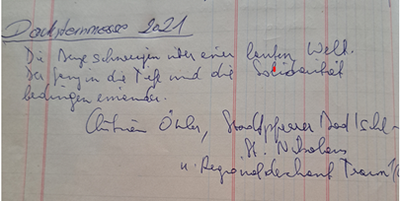 Dachsteinmesse 2021
Die Berge schweigen über einer lauten Welt.
Der Gang in die Tiefe und die Solidarität
bedingen einander.
Christian Öhler, Stadtpfarrer Bad Ischl -
St. Nikolaus
u. Regionaldechant